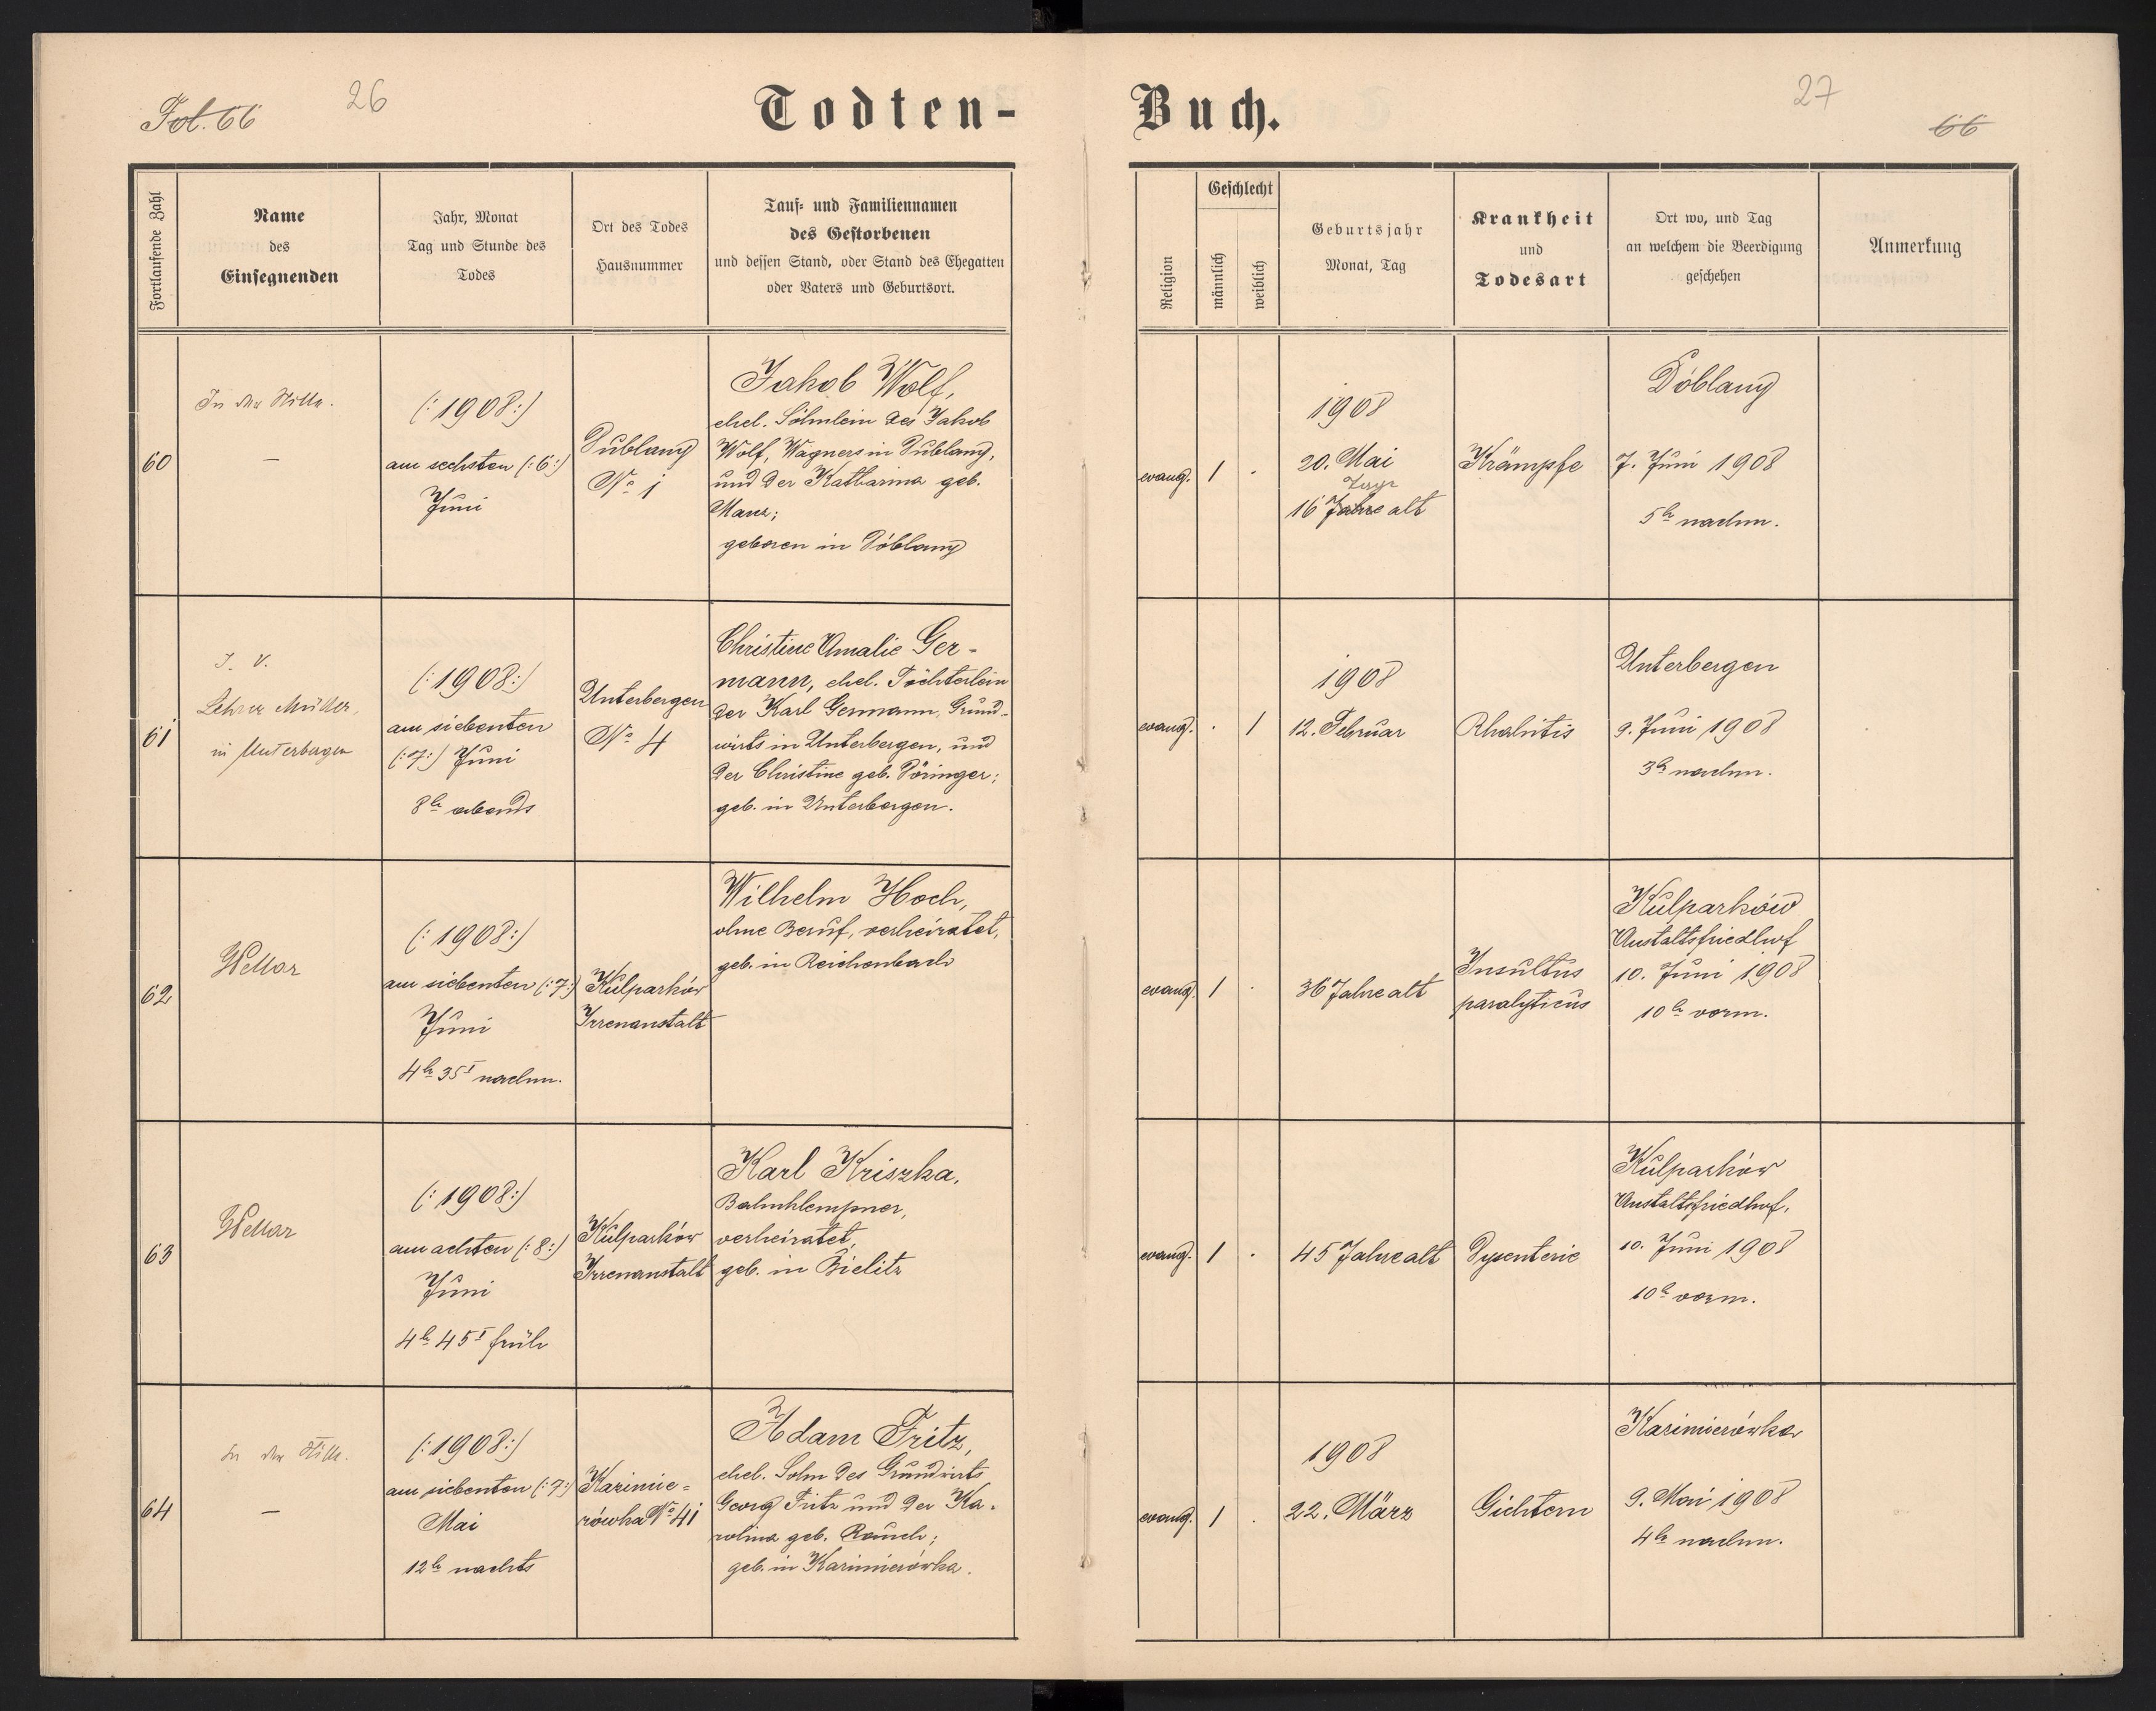 Fol. 66
26
Todten-
Buch.
27
66
Fortlaufende Zahl
Name
des
Einsegnenden
Jahr, Monat
Tag und Stunde des
Todes
Ort des Todes
Hausnummer
Tauf- und Familiennamen
des Gestorbenen
und dessen Stand, oder Stand des Ehegatten
oder Vaters und Geburtsort.
Religion
Geschlecht
männlich
weiblich
Geburtsjahr
Monat, Tag
Krankheit
und
Todesart
Ort wo, und Tag
an welchem die Beerdigung
geschehen
Anmerkung
60
In der Stille.
—
(: 1908 :)
am sechsten (: 6 :)
Juni
Dublany
No 1
Jakob Wolf,
ehel. Söhnlein des Jakob
Wolf, Wagners in Dublany,
und der Katharina geb.
Manz;
geboren in Döblany
evang.
1
.
1908
20. Mai
Tage
16 Jahre alt
Krämpfe
Döblany
7. Juni 1908
5h nachm.
61
I. V.
Lehrer Müller,
in Unterbergen
(: 1908 :)
am siebenten
(: 7 :) Juni
8h abends
Unterbergen
No 4
Christine Amalie Ger-
mann, ehel. Töchterlein
der Karl Germann, Grund-
wirts in Unterbergen, und
der Christine geb. Döringer;
geb. in Unterbergen.
evang.
.
1
1908
12. Februar
Rhahitis
Unterbergen
9. Juni 1908
3h nachm.
62
(: 1908 :)
am siebenten (: 7 :)
Juni
4h 35I nachm.
Kulparków
Irrenanstalt
Wilhelm Hoch,
ohne Beruf, verheiratet,
geb. in Reichenbach
evang.
1
.
36 Jahre alt
Insultus
paralyticus
Kulparków
Anstaltsfriedhof
10. Juni 1908
10h vorm.
63
(: 1908 :)
am achten (: 8 :)
Juni
4h 45I früh
Kulparków
Irrenanstalt
Karl Kriszka,
Bahnklempner,
verheiratet,
geb. in Bielitz
evang.
1
.
45 Jahre alt
Dysenterie
Kulparków
Anstaltsfriedhof,
10. Juni 1908
10h vorm.
64
In der Stille.
—
(: 1908 :)
am siebenten (: 7 :)
Mai
12h nachts
Kazimie-
rówka No 41
Adam Fritz,
ehel. Sohn des Grundwirts
Georg Fritz und der Ka-
rolina geb. Rauch;
geb. in Kazimierówka.
evang.
1
.
1908
22. März
Gichtern
Kazimierówka
9. Mai 1908
4h nachm.